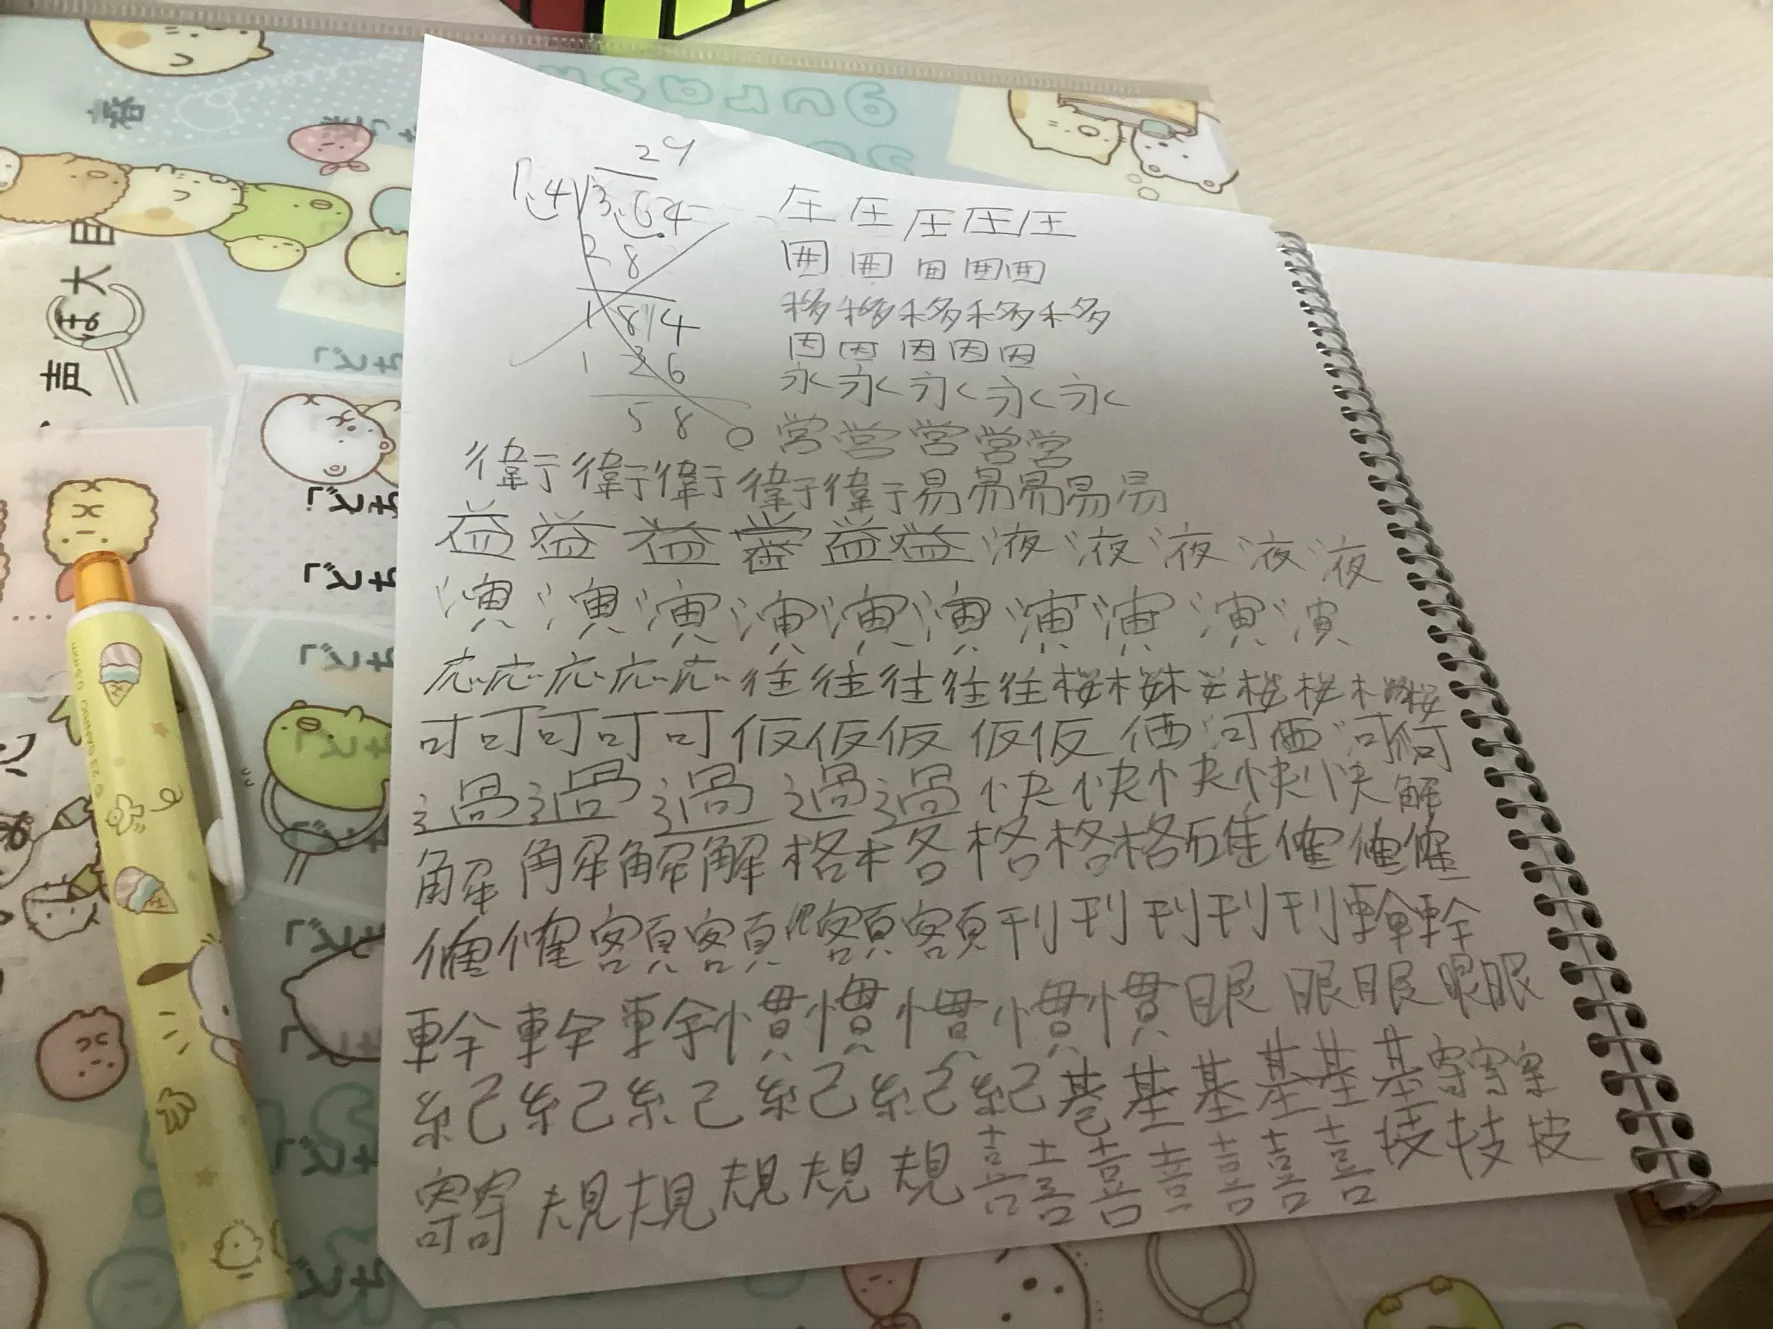 29
1.4 3.64
28
1814
1 26
58
圧圧圧圧圧
囲囲囲囲囲
移移移移移
因因因因因
永永永永永
営営営営営
衛衛衛衛衛易易易易易
益益益益益液液液液液
演演演演演演演演演演
応応応応応往往往往往桜桜桜桜桜桜
可可可可可仮仮仮仮仮価河価河何
過過過過過快快快快快解
解解解解格格格格格確
額額額額刊刊刊刊刊幹幹
幹幹幹慣慣慣慣慣眼眼眼眼眼
紀紀紀紀紀紀基基基基基基寄寄寄
寄寄規規規規規喜喜喜喜喜喜喜技技技
大
声